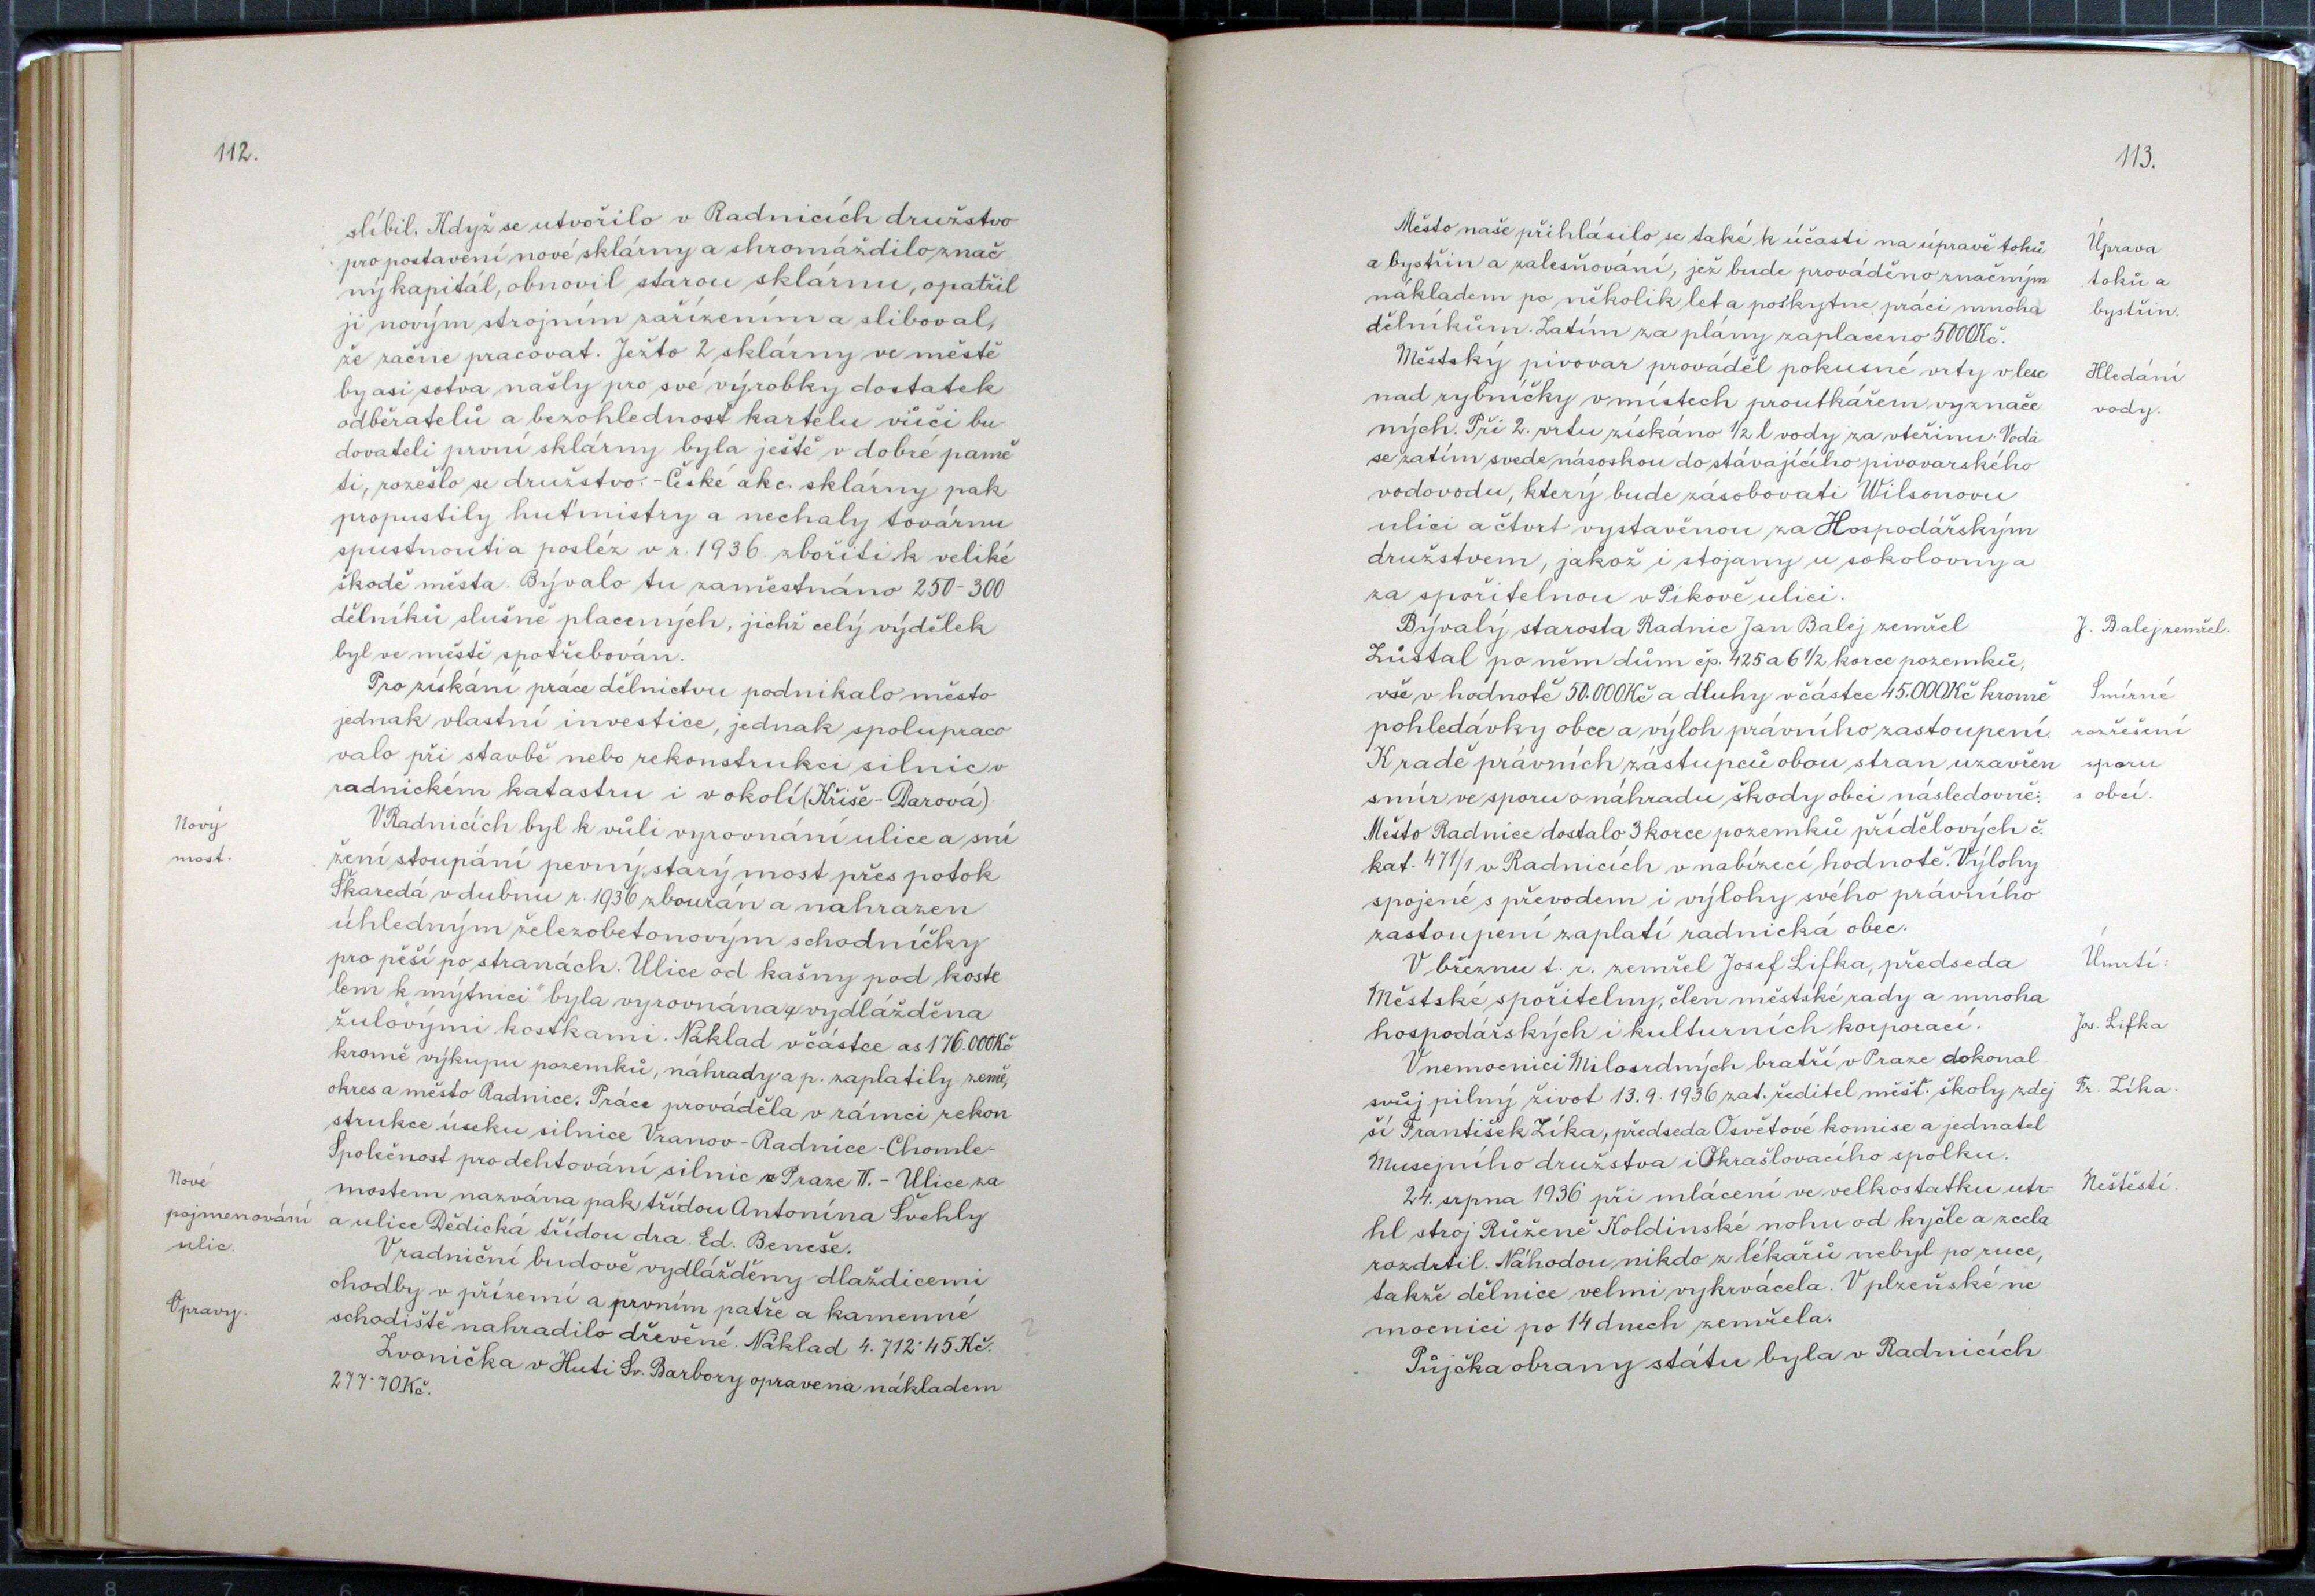 112.
slíbil. Když se utvořilo v Radnicích družstvo
pro postavení nové sklárny a shromáždilo znač
ný kapitál, obnovil starou sklárnu, opatřil
ji novým strojním zařízením a sliboval,
že začne pracovat. Ježto 2 sklárny ve městě
by asi sotva našly pro své výrobky dostatek
odběratelů a bezohlednost kartelu vůči bu
dovateli první sklárny byla ještě v dobré pamě
ti, rozešlo se družstvo. - České akc. sklárny pak
propustily huťmistry a nechaly továrnu
spustnouti a posléz v r. 1936 zbořiti k veliké
škodě města. Bývalo tu zaměstnáno 250-300
dělníků slušně placených, jichž celý výdělek
byl ve městě spotřebován.
Pro získání práce dělnictvu podnikalo město
jednak vlastní investice, jednak spolupraco
valo při stavbě nebo rekonstrukci silnic v
radnickém katastru i v okolí (Kříše-Darová).
Nový
most.
V Radnicích byl k vůli vyrovnání ulice a sní
žení stoupání pevný, starý most přes potok
Škaredá v dubnu r. 1936 zbourán a nahrazen
úhledným železobetonovým s chodníčky
pro pěší po stranách. Ulice od kašny pod koste
lem k „mýtnici" byla vyrovnána a vydlážděna
žulovými kostkami. Náklad v částce as 176.000Kč
kromě výkupu pozemků, náhrady a p. zaplatily země,
okres a město Radnice. Práce prováděla v rámci rekon
strukce úseku silnice Vranov-Radnice-Chomle-
Společnost pro dehtování silnic v Praze II. - Ulice za
Nové
pojmenování
ulic.
mostem nazvána pak třídou Antonína Švehly
a ulice Dědická třídou dra. Ed. Beneše.
V radniční budově vydlážděny dlaždicemi
Opravy.
chodby v přízemí a prvním patře a kamenné
schodiště nahradilo dřevěné. Náklad 4.712·45 Kč.
Zvonička v Huti Sv. Barbory opravena nákladem
277·70Kč.
113.
Město naše přihlásilo se také k účasti na úpravě toků
a bystřin a zalesňování, jež bude prováděno značným
nákladem po několik let a poskytne práci mnoha
dělníkům. Zatím za plány zaplaceno 5000Kč.
Úprava
toků a
bystřin.
Městský pivovar prováděl pokusné vrty v lese
nad rybníčky v místech proutkářem vyznače
ných. Při 2. vrtu získáno 1/2 l vody za vteřinu. Voda
se zatím svede násoskou do stávajícího pivovarského
vodovodu, který bude zásobovati Wilsonovu
ulici a čtvrt vystavěnou za Hospodářským
družstvem, jakož i stojany u sokolovny a
za spořitelnou v Pikově ulici.
Hledání
vody.
Bývalý starosta Radnic Jan Balej zemřel
Zůstal po něm dům čp. 425 a 6 1/2 korce pozemků,
vše v hodnotě 50.000Kč a dluhy v částce 45.000Kč kromě
pohledávky obce a výloh právního zastoupení.
K radě právních zástupců obou stran uzavřen
smír ve sporu o náhradu škody obci následovně:
Město Radnice dostalo 3 korce pozemků přídělových č.
kat. 471/1 v Radnicích v nabízecí hodnotě. Výlohy
spojené s převodem i výlohy svého právního
zastoupení zaplatí radnická obec.
J. Balej zemřel.
Smírné
rozřešení
sporu
s obcí.
V březnu t. r. zemřel Josef Lifka, předseda
Městské spořitelny, člen městské rady a mnoha
hospodářských i kulturních korporací.
Úmrtí:
Jos. Lifka
V nemocnici Milosrdných bratří v Praze dokonal
svůj pilný život 13.9.1936 zat. ředitel měšť. školy zdej
ší František Zíka, předseda Osvětové komise a jednatel
Musejního družstva i Okrašlovacího spolku.
Fr. Zíka.
24. srpna 1936 při mlácení ve velkostatku utr-
hl stroj Růženě Koldinské nohu od kyčle a zcela
rozdrtil. Náhodou nikdo z lékařů nebyl po ruce,
takže dělnice velmi vykrvácela. V plzeňské ne
mocnici po 14 dnech zemřela.
Neštěstí.
Půjčka obrany státu byla v Radnicích